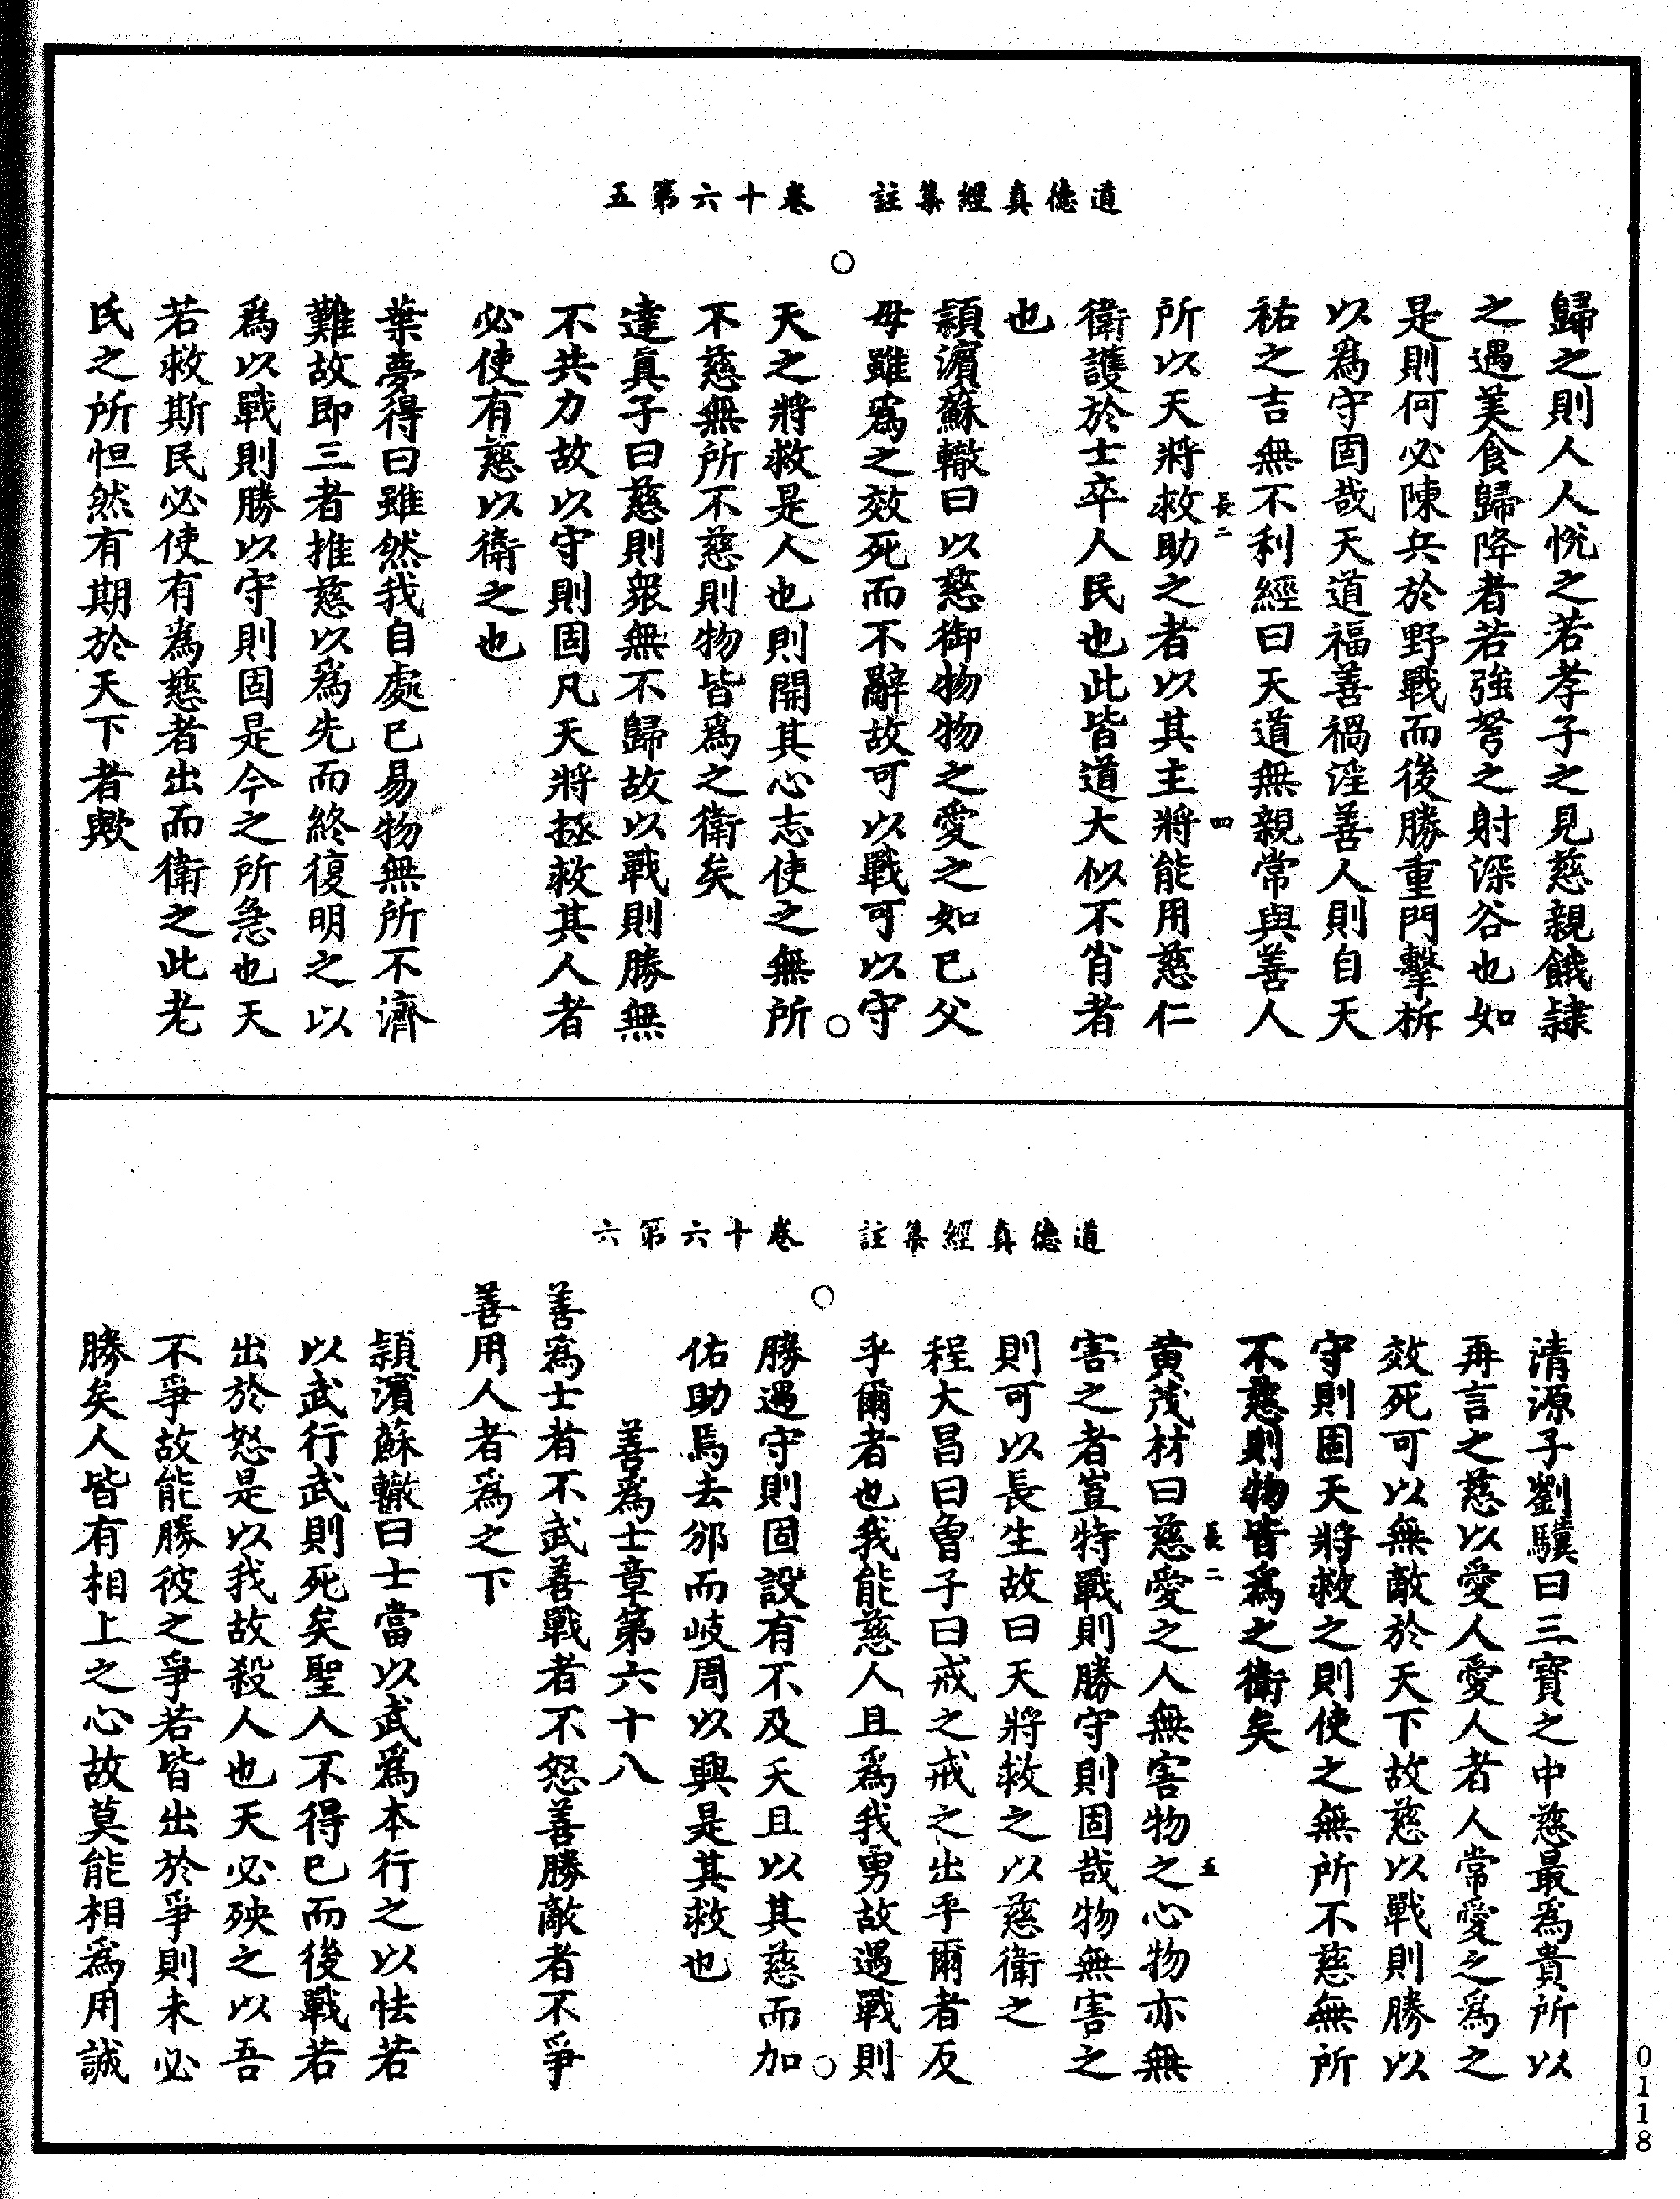 道德真經集註　卷十六第五
歸之則人人悅之若孝子之見慈親餓隸
之遇美食歸降者若強弩之射深谷也如
是則何必陳兵於野戰而後勝重門擊柝
以為守固哉天道福善禍淫善人則自天
祐之吉無不利經曰天道無親常與善人
長二　四
所以天將救助之者以其主將能用慈仁
衛護於士卒人民也此皆道大似不肖者
也
潁濵蘇轍曰以慈御物物之愛之如己父
母雖爲之效死而不辭故可以戰可以守
天之將救是人也則開其心志使之無所
不慈無所不慈則物皆爲之衛矣
達真子曰慈則衆無不歸故以戰則勝無
不共力故以守則固凡天將拯救其人者
必使有慈以衛之也
葉夢得曰雖然我自處已易物無所不濟
難故即三者推慈以爲先而終復明之以
爲以戰則勝以守則固是今之所急也天
若救斯民必使有爲慈者出而衛之此老
氏之所怛然有期於天下者歟
道德真經集註　卷十六第六
清源子劉驥曰三寶之中慈最爲貴所以
再言之慈以愛人愛人者人常愛之爲之
效死可以無敵於天下故慈以戰則勝以
守則固天將救之則使之無所不慈無所
不慈則物皆爲之衛矣
長二　五
黃茂材曰慈愛之人無害物之心物亦無
害之者豈特戰則勝守則固哉物無害之
則可以長生故曰天將救之以慈衛之
程大昌曰曾子曰戒之戒之出乎爾者反
乎爾者也我能慈人且爲我勇故遇戰則
勝遇守則固設有不及天且以其慈而加
佑助焉去邠而岐周以興是其救也
善爲士章第六十八
善爲士者不武善戰者不怒善勝敵者不爭
善用人者爲之下
潁濵蘇轍曰士當以武爲本行之以怯若
以武行武則死矣聖人不得已而後戰若
出於怒是以我故殺人也天必殃之以吾
不爭故能勝彼之爭若皆出於爭則未必
勝矣人皆有相上之心故莫能相爲用誠
0118